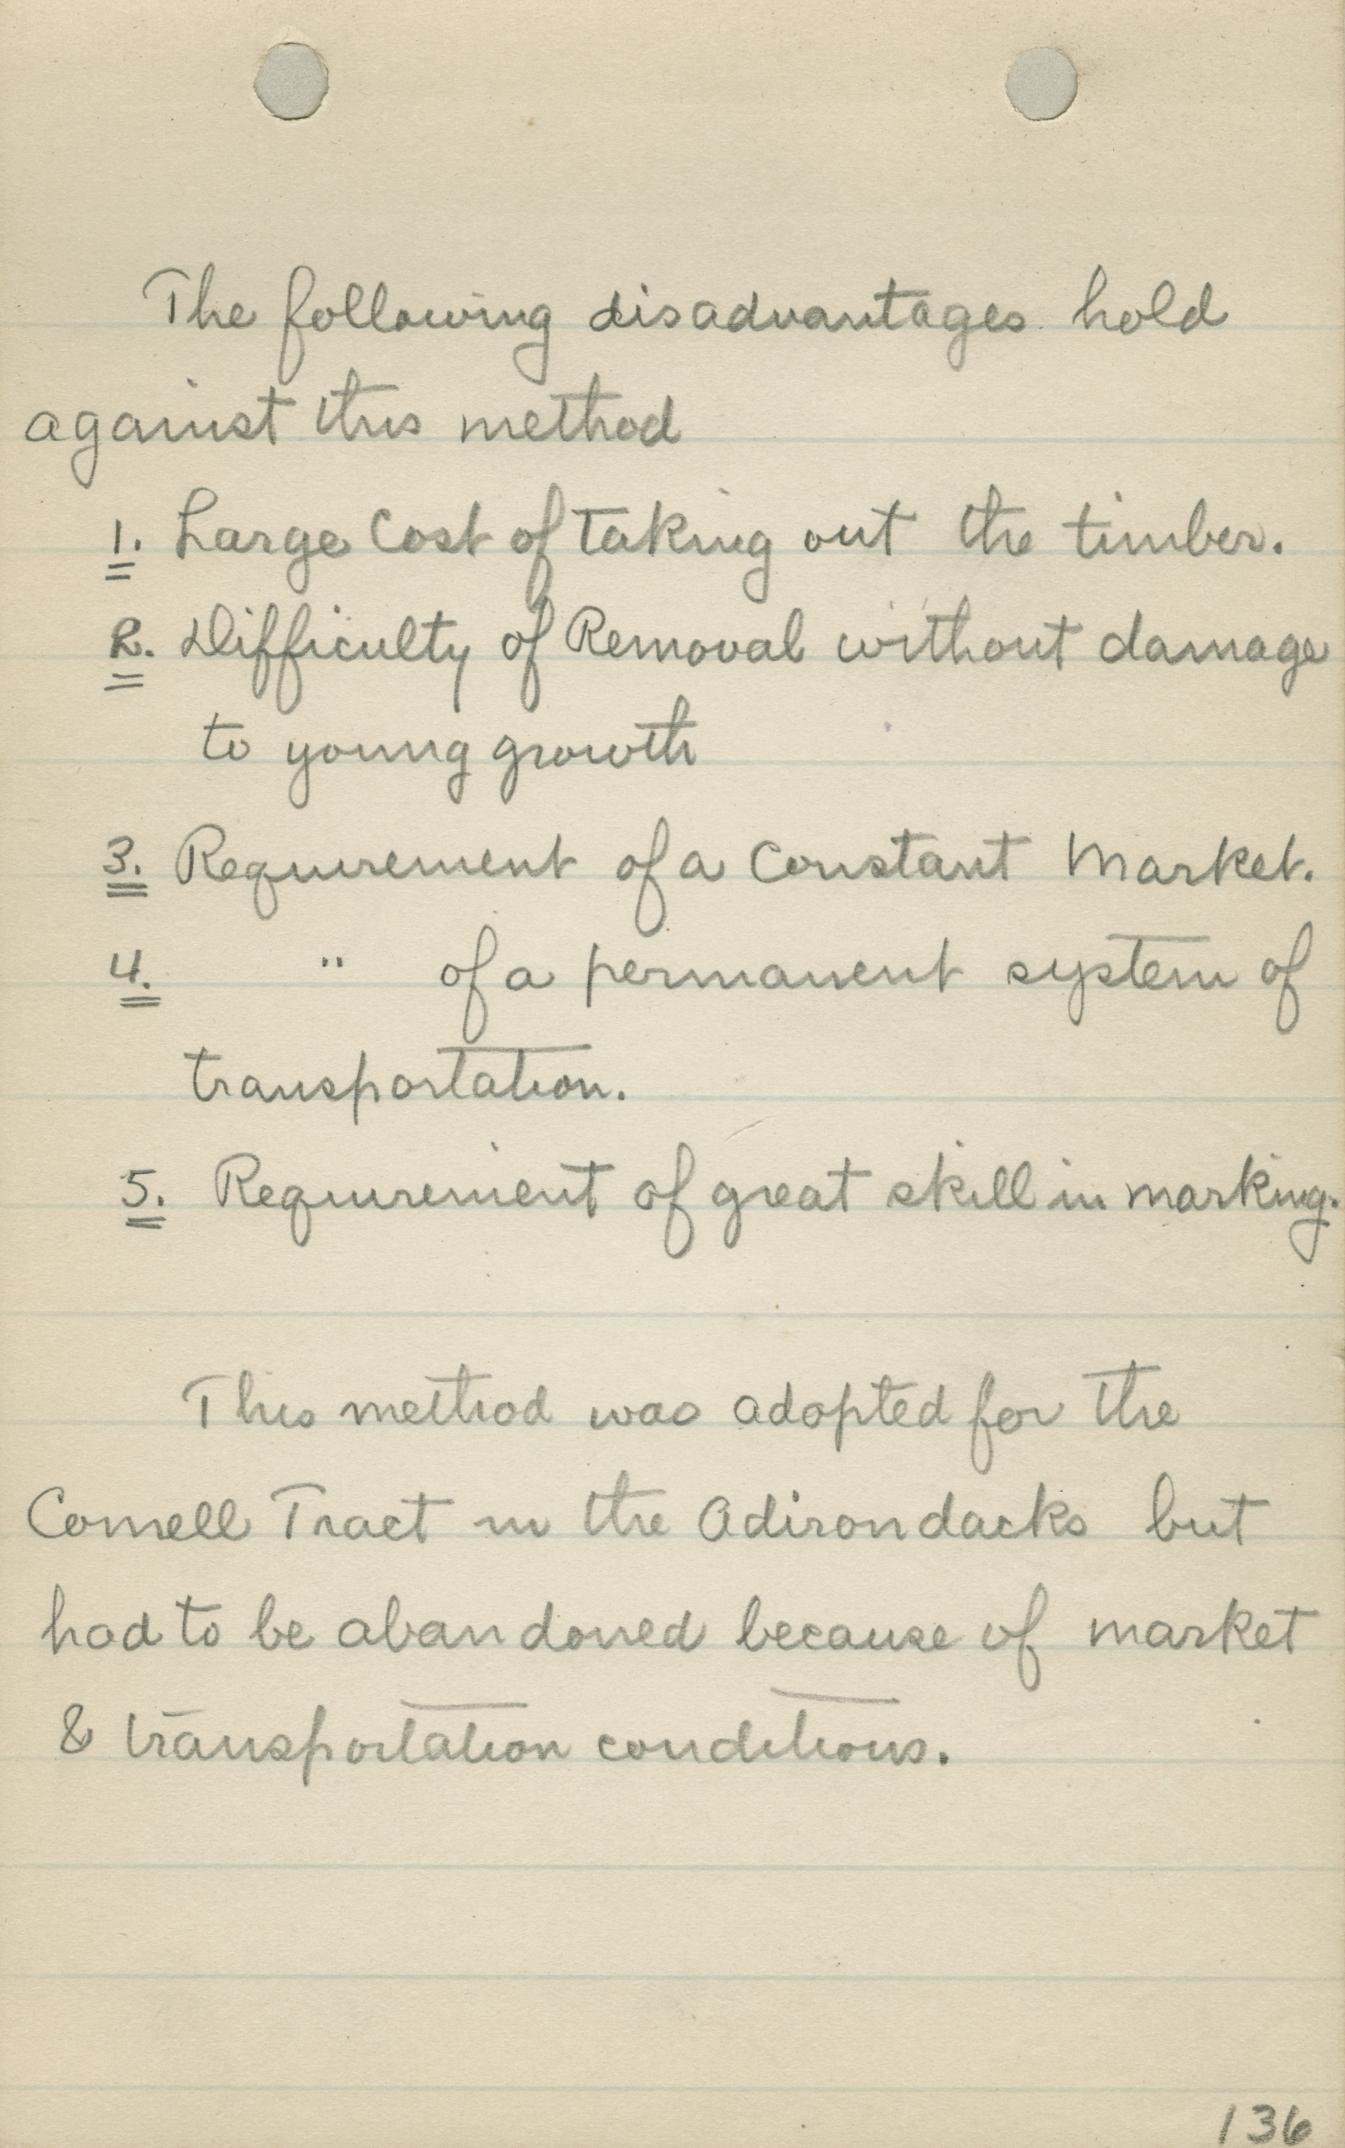 The following disadvantages hold
against this method
1. Large Cost of taking out the timber.
2. Difficulty of Removal without damage
to young growth
3. Requirement of a Constant Market.
4. " of a permanent system of
transportation.
5. Requirement of great skill in marking.
This method was adopted for the
Cornell Tract in the Adirondacks but
had to be abandoned because of market
& transportation conditions.
136